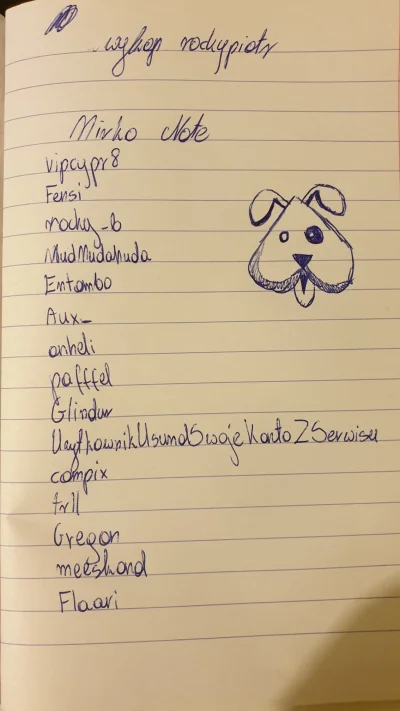 wykop rockypiotr
Mirko Note
vipcypr8
Fensi
rocky_b
MudMudahuda
Entombo
Aux_
anheli
pafffel
Glindur
UzytkownikUsunalSwojeKontoZSerwisu
compix
trll
Gregon
meeshand
Flaari